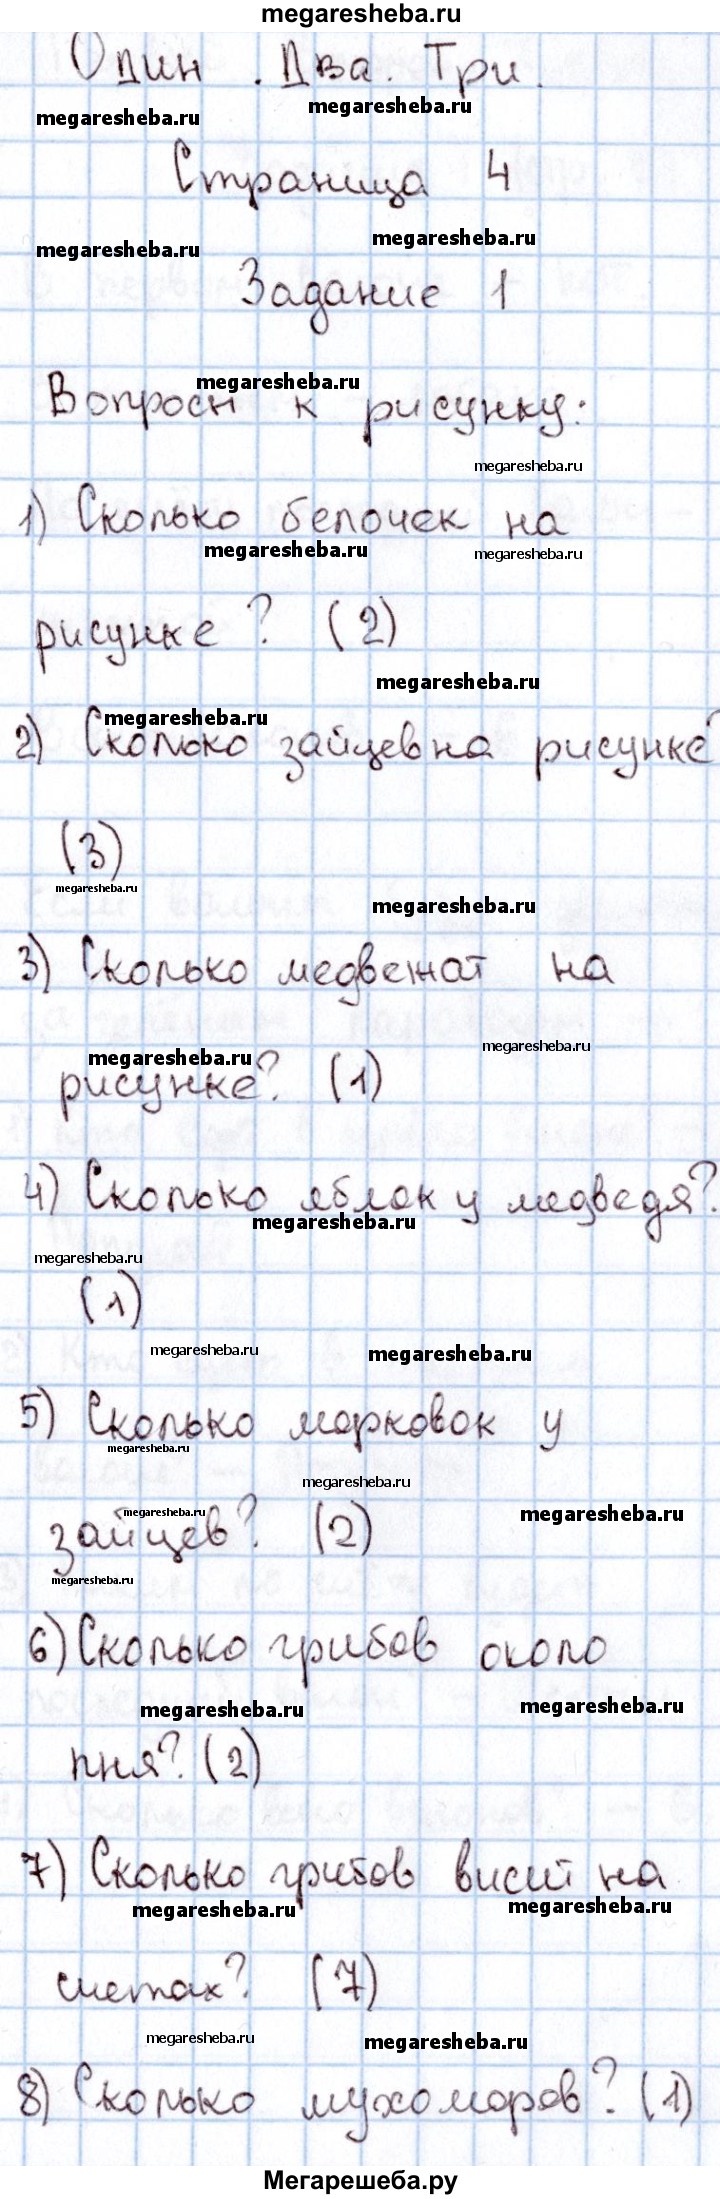 megaresheba.ru
Один. Два. Три.
megaresheba.ru megaresheba.ru
Страница 4
megaresheba.ru megaresheba.ru
Задание 1
megaresheba.ru
Вопросы к рисунку:
megaresheba.ru
1) Сколько белочек на
megaresheba.ru megaresheba.ru
рисунке? (2)
megaresheba.ru
megaresheba.ru
2) Сколько зайцев на рисунке?
(3)
megaresheba.ru
megaresheba.ru
3) Сколько медвежат на
megaresheba.ru megaresheba.ru
рисунке? (1)
4) Сколько яблок у медведя?
megaresheba.ru
megaresheba.ru
(1)
megaresheba.ru megaresheba.ru
5) Сколько морковок у
megaresheba.ru
megaresheba.ru
megaresheba.ru megaresheba.ru
зайцев? (2)
megaresheba.ru
6) Сколько грибов около
megaresheba.ru megaresheba.ru
пня? (2)
7) Сколько грибов висит на
megaresheba.ru megaresheba.ru
счетах? (7)
megaresheba.ru megaresheba.ru
8) Сколько мухоморов? (1)
Мегарешеба.ру